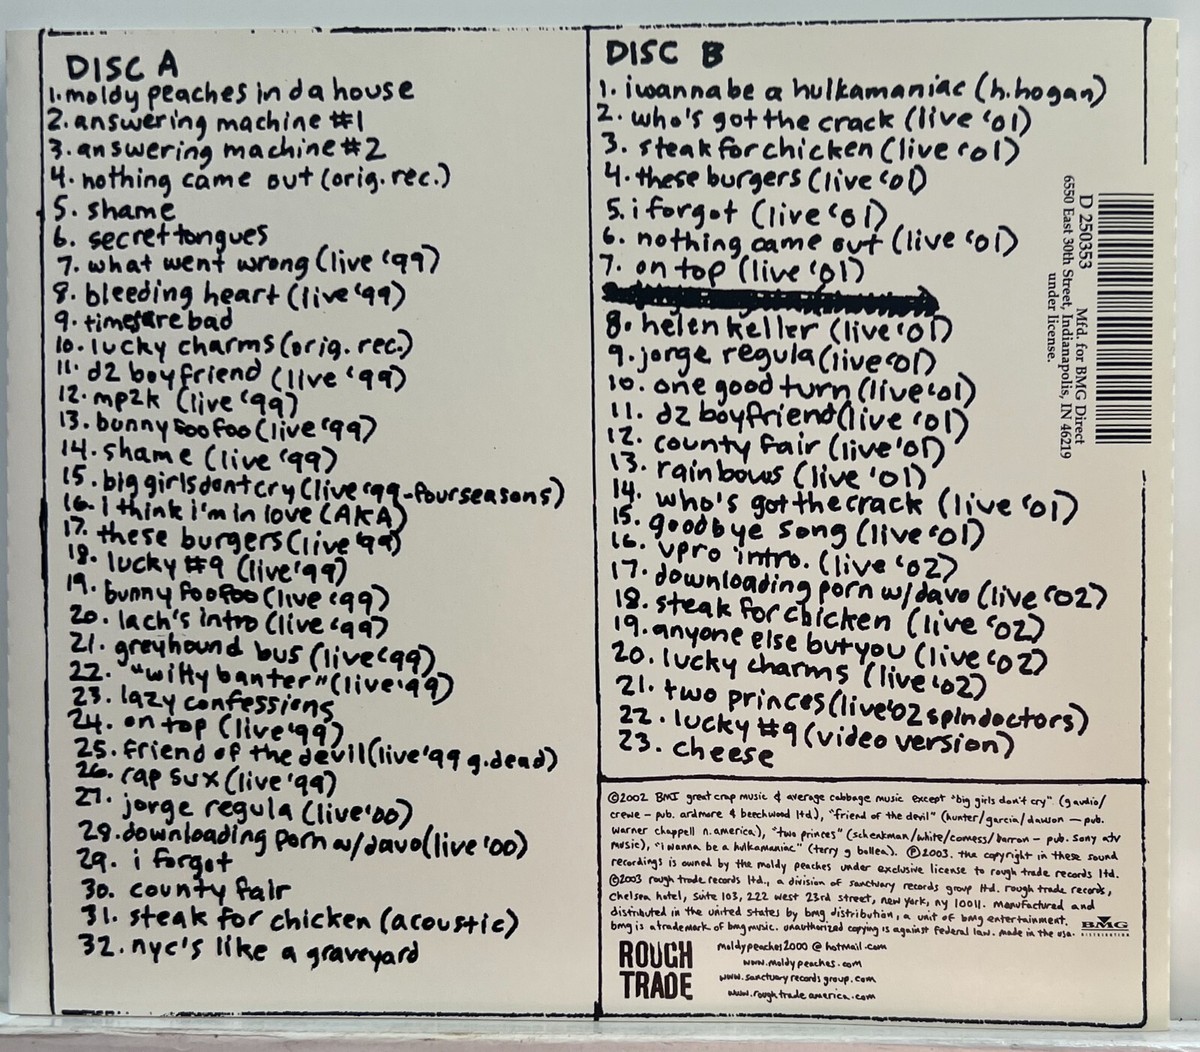 DISC A
1. moldy peaches in da house
2. answering machine #1
3. answering machine #2
4. nothing came out (orig. rec.)
5. shame
6. secret tongues
7. what went wrong (live '99)
8. bleeding heart (live '99)
9. times are bad
10. lucky charms (orig. rec.)
11. d2 boyfriend (live '99)
12. mp2k (live '99)
13. bunny foo foo (live '99)
14. shame (live '99)
15. big girls dont cry (live '99-fourseasons)
16. i think i'm in love (AKA)
17. these burgers (live '99)
18. lucky #9 (live '99)
19. bunny foo foo (live '99)
20. lach's intro (live '99)
21. greyhound bus (live '99)
22. "witty banter" (live '99)
23. lazy confessions
24. on top (live '99)
25. friend of the devil (live '99 g.dead)
26. rap sux (live '99)
27. jorge regula (live '00)
28. downloading porn w/davo (live '00)
29. i forgot
30. county fair
31. steak for chicken (acoustic)
32. nyc's like a graveyard
DISC B
1. i wanna be a hulkamaniac (h.hogan)
2. who's got the crack (live '01)
3. steak for chicken (live '01)
4. these burgers (live '01)
5. i forgot (live '01)
6. nothing came out (live '01)
7. on top (live '01)
8. helen keller (live '01)
9. jorge regula (live '01)
10. one good turn (live '01)
11. d2 boyfriend (live '01)
12. county fair (live '01)
13. rainbows (live '01)
14. who's got the crack (live '01)
15. goodbye song (live '01)
16. vpro intro. (live '02)
17. downloading porn w/davo (live '02)
18. steak for chicken (live '02)
19. anyone else but you (live '02)
20. lucky charms (live '02)
21. two princes (live '02 spin doctors)
22. lucky #9 (video version)
23. cheese
D 250353 Mfd. for BMG Direct
6550 East 30th Street, Indianapolis, IN 46219
under license.
©2002 BMI great crap music & average cabbage music except "big girls don't cry" (gaudio/
crewe – pub. ardmore & beechwood ltd), "friend of the devil" (hunter/garcia/dawson – pub.
warner chappell n.america), "two princes" (schenkman/white/comess/barron – pub. sony atv
music), "i wanna be a hulkamaniac" (terry g bollea). ℗2003. the copyright in these sound
recordings is owned by the moldy peaches under exclusive license to rough trade records ltd.
©2003 rough trade records ltd., a division of sanctuary records group ltd. rough trade records,
chelsea hotel, suite 103, 222 west 23rd street, new york, ny 10011. manufactured and
distributed in the united states by bmg distribution, a unit of bmg entertainment.
bmg is a trademark of bmg music. unauthorized copying is against federal law. made in the usa.
BMG
DISTRIBUTION
ROUGH
TRADE
moldypeaches2000@hotmail.com
www.moldypeaches.com
www.sanctuaryrecordsgroup.com
www.roughtradeamerica.com